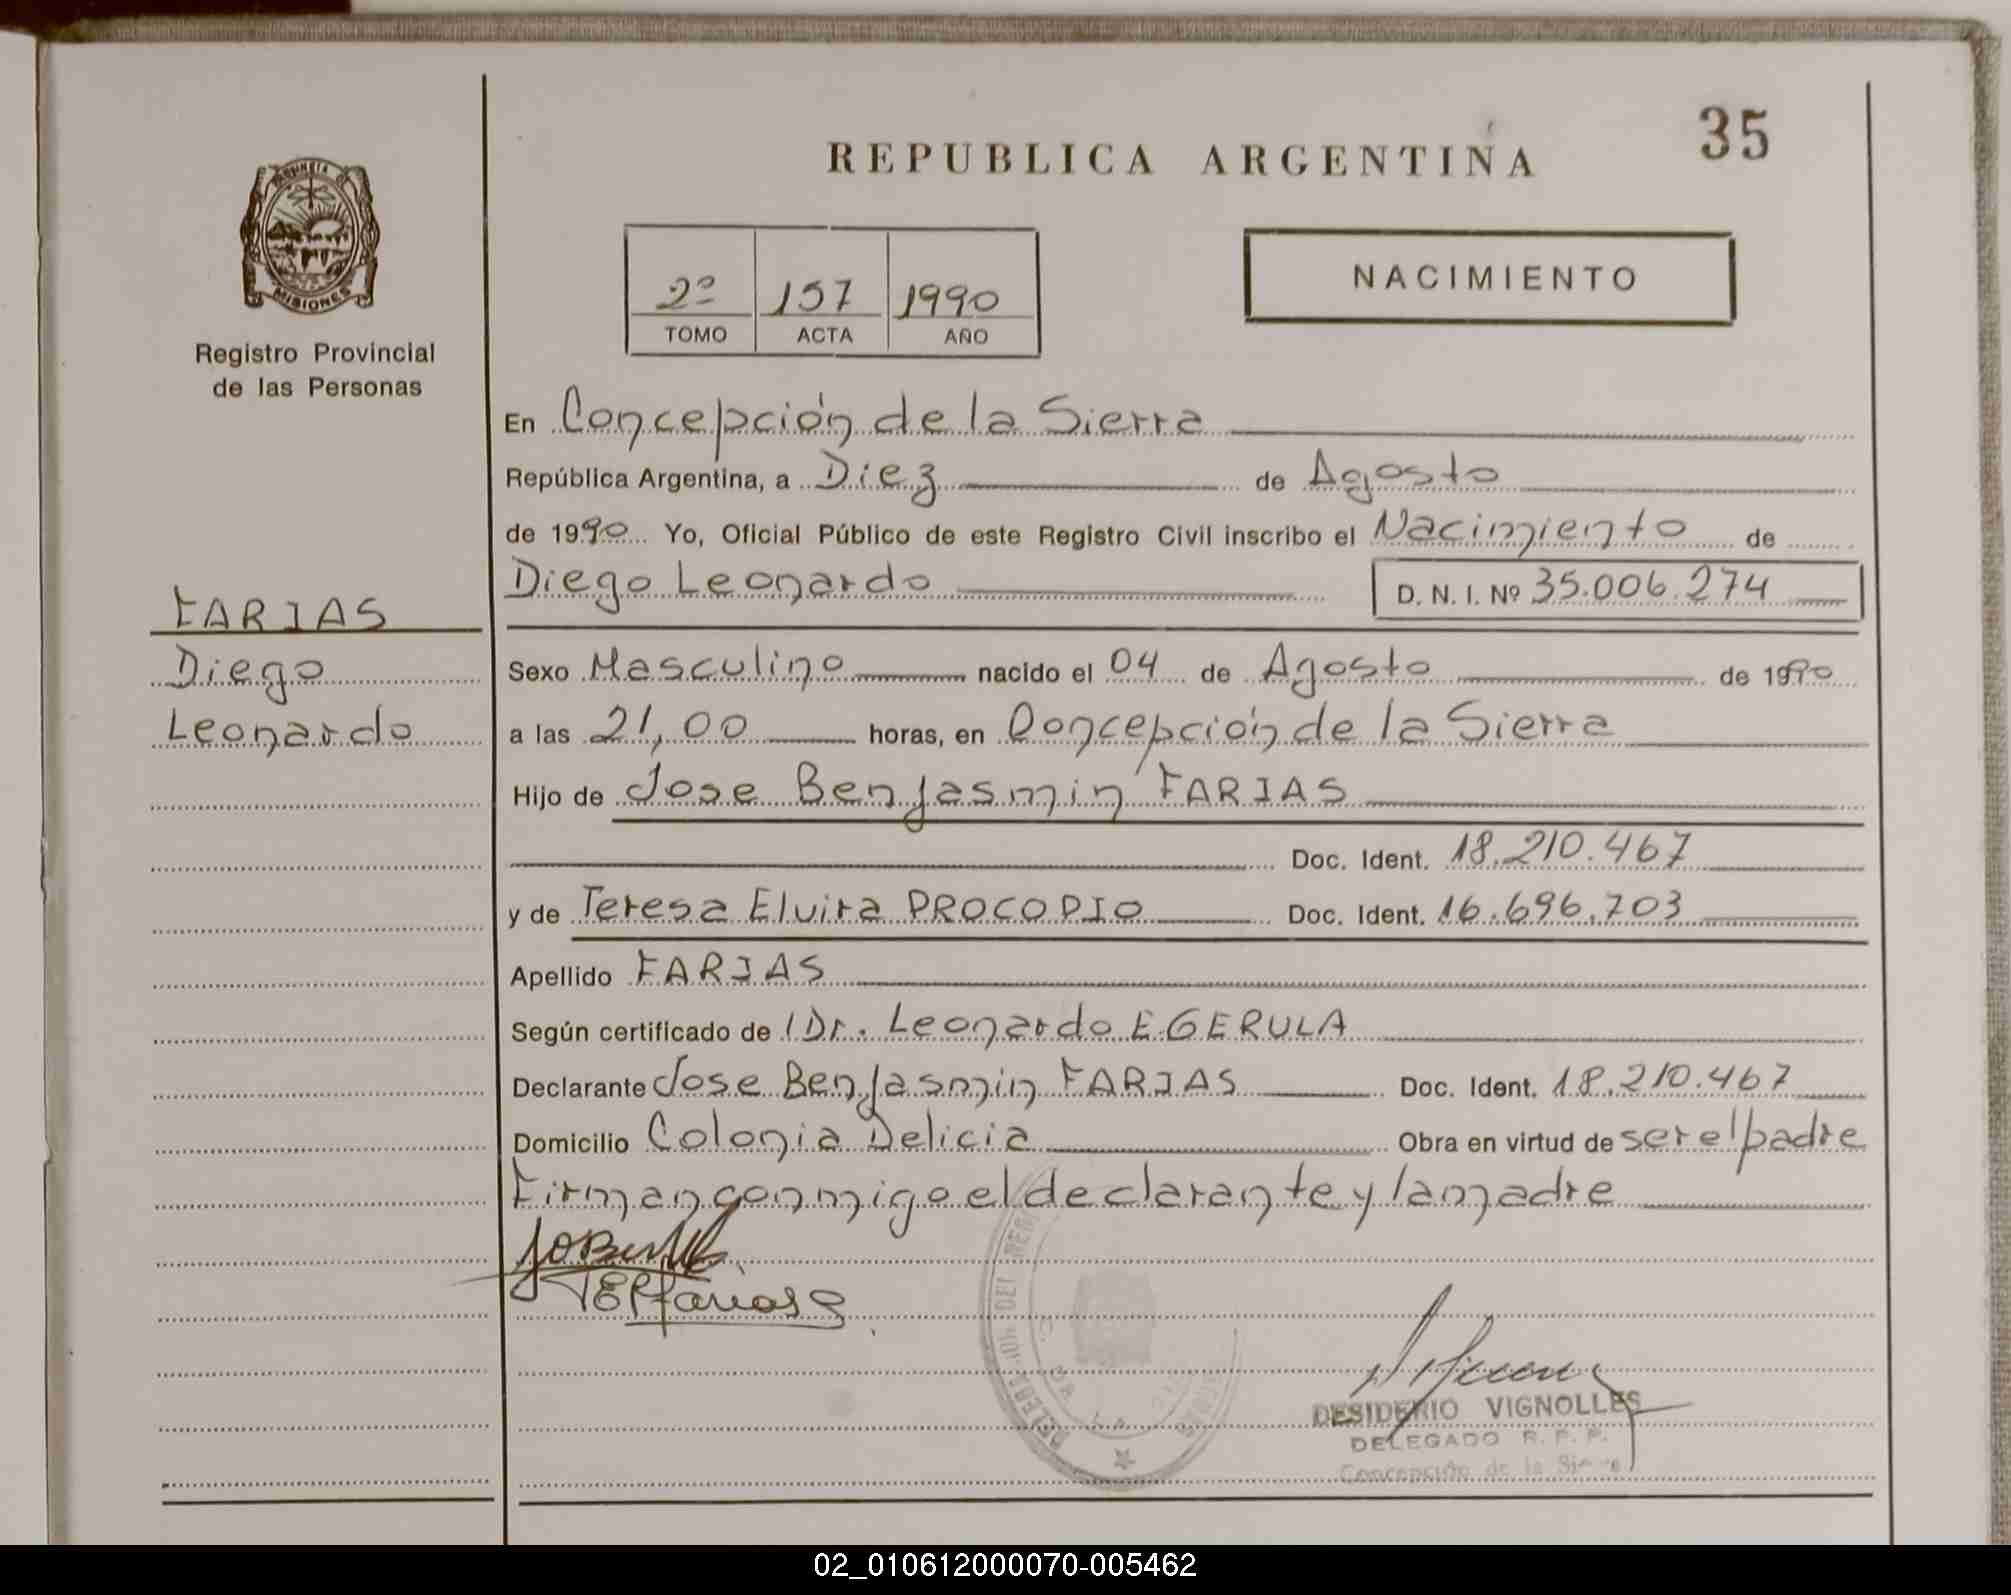 REPUBLICA ARGENTINA
35
PROVINCIA DE
MISIONES
Registro Provincial
de las Personas
2º 157 1990
TOMO ACTA AÑO
NACIMIENTO
En Concepción de la Sierra
República Argentina, a Diez de Agosto
de 1990 Yo, Oficial Público de este Registro Civil inscribo el Nacimiento de
Diego Leonardo D. N. I. Nº 35.006.274
FARIAS
Diego
Leonardo
Sexo Masculino nacido el 04 de Agosto de 1990
a las 21,00 horas, en Concepción de la Sierra
Hijo de Jose Benjasmin FARIAS
Doc. Ident. 18.210.467
y de Teresa Elvira PROCOPIO Doc. Ident. 16.696.703
Apellido FARIAS
Según certificado de Dr. Leonardo E GERULA
Declarante Jose Benjasmin FARIAS Doc. Ident. 18.210.467
Domicilio Colonia Delicia Obra en virtud de ser el padre
Firman conmigo el declarante y la madre
DESIDERIO VIGNOLLES
DELEGADO R. P. P.
Concepción de la Sierra
02_010612000070-005462